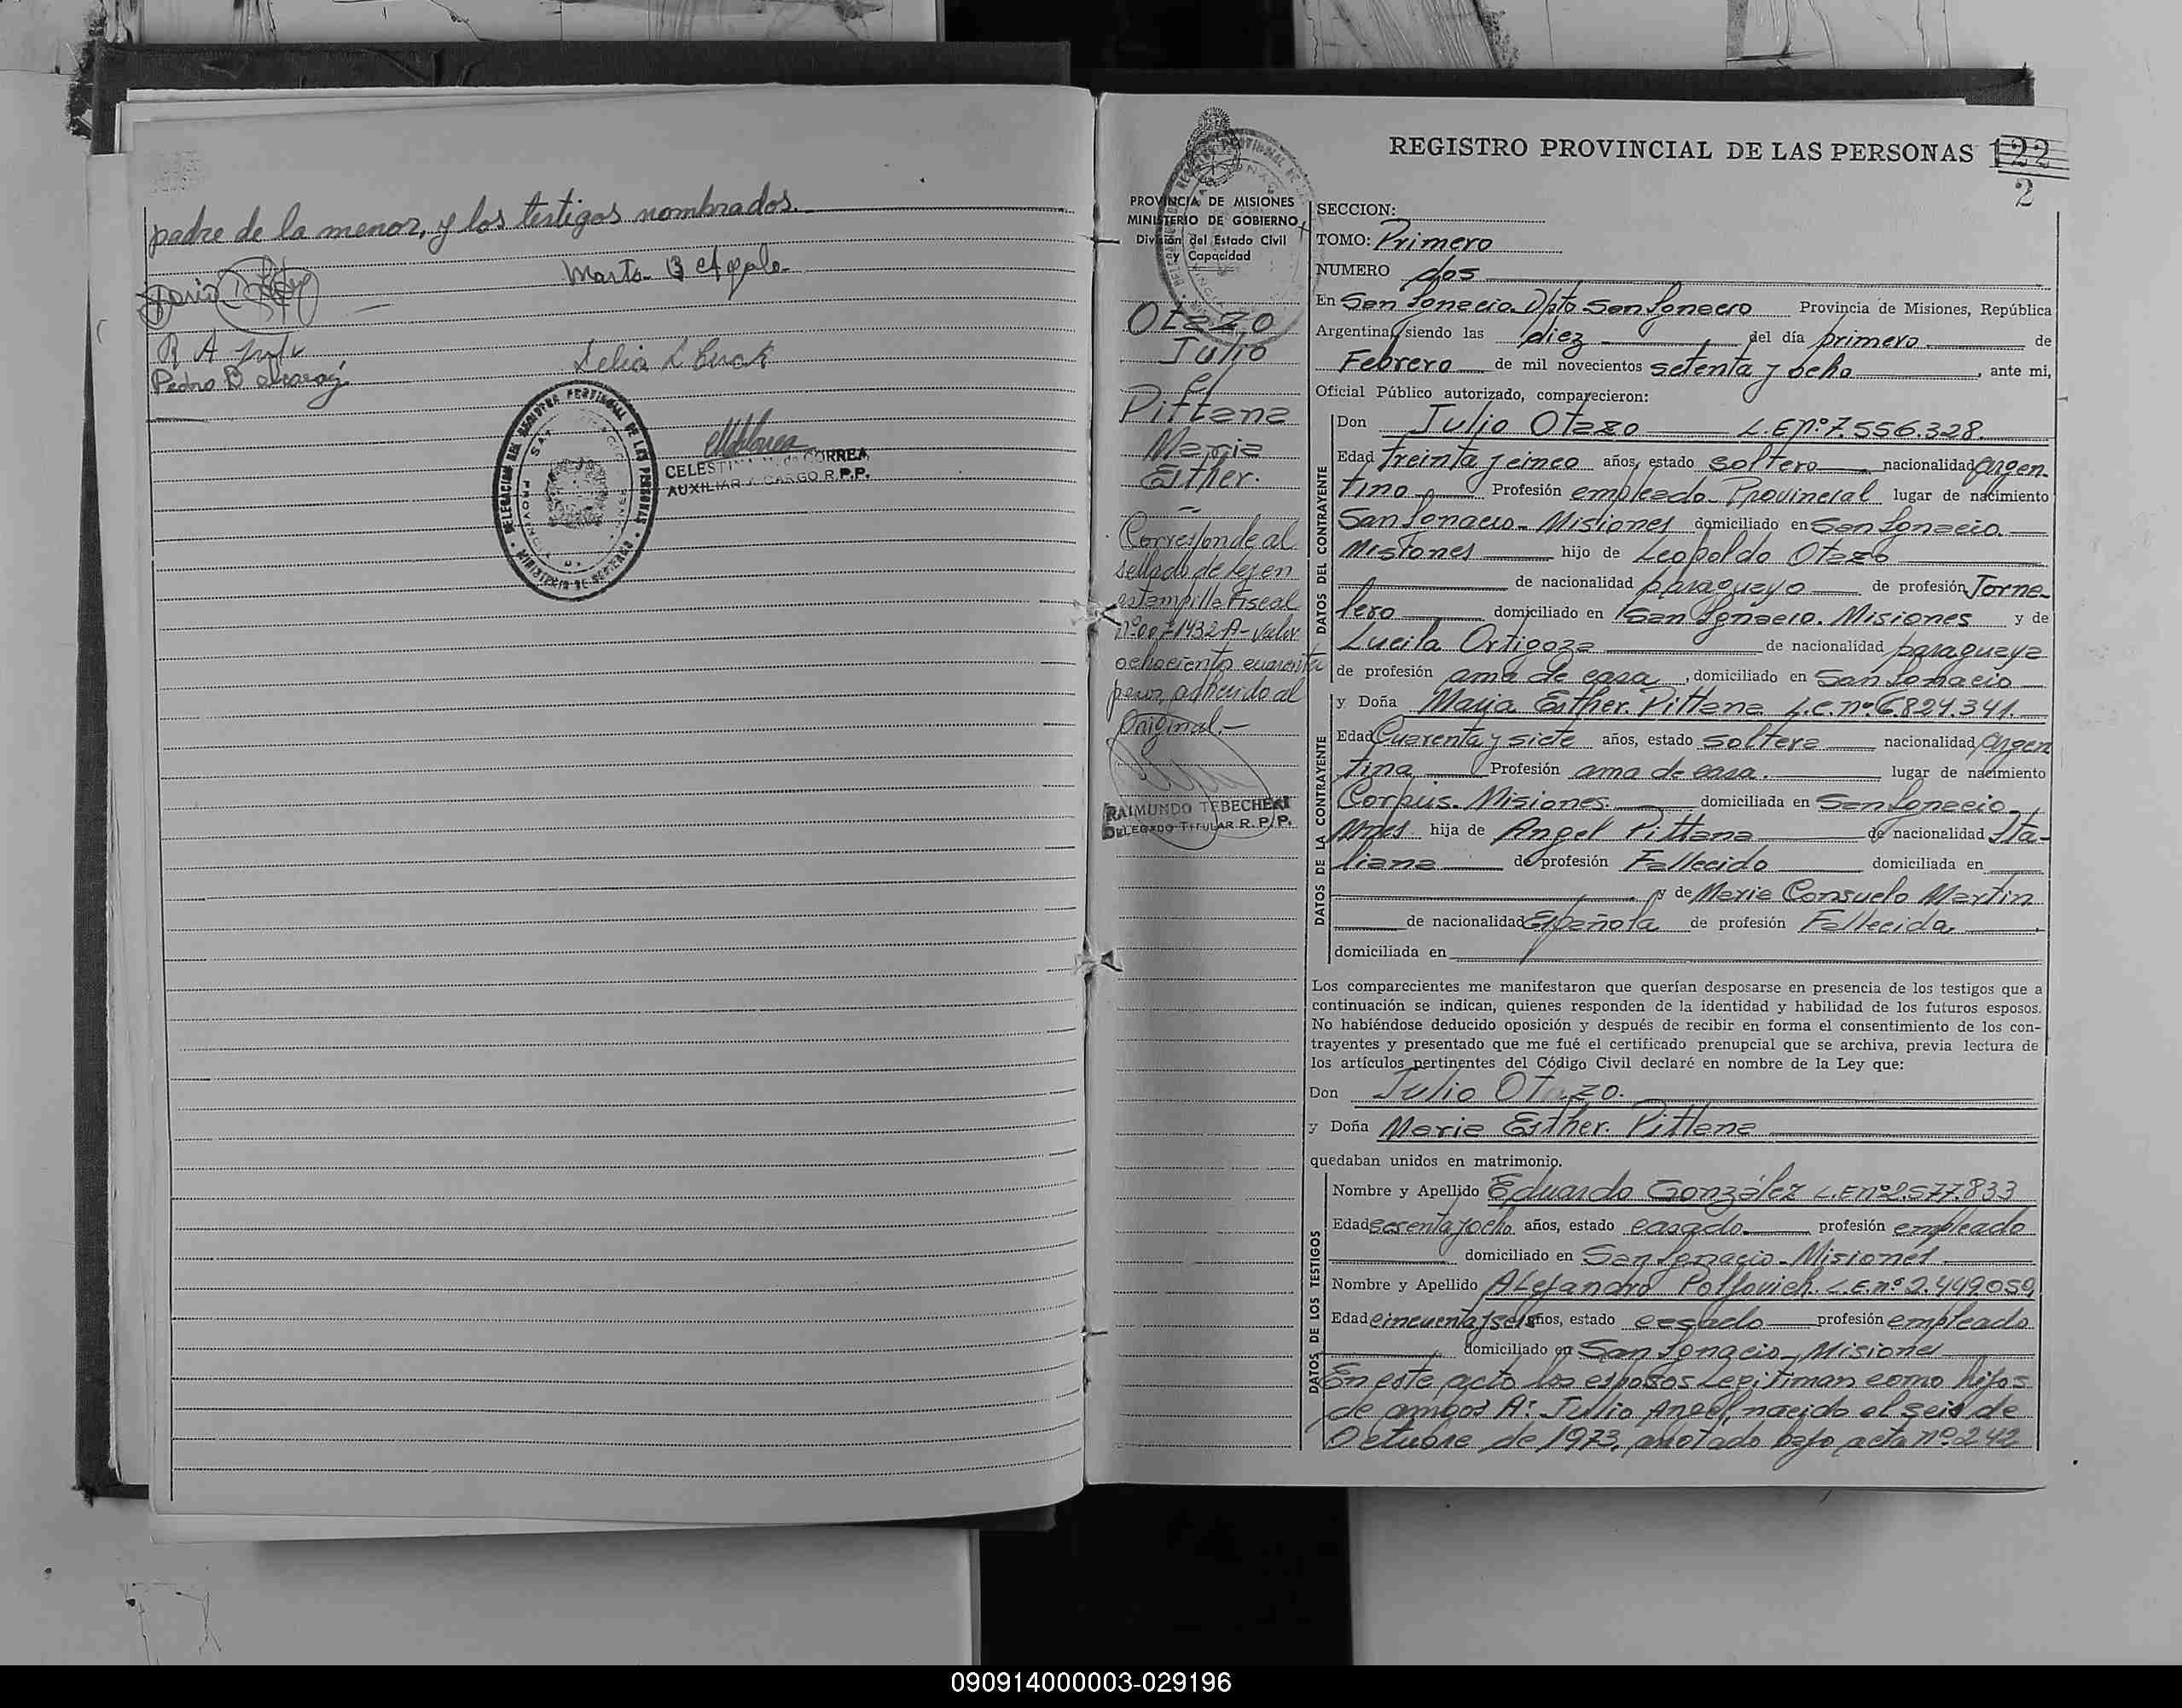 padre de la menor, y los testigos nombrados.
Marta B
Pedro D
Lelia
DELEGACION DEL REGISTRO PROVINCIAL DE LAS PERSONAS
MINISTERIO DE GOBIERNO
CORREA
AUXILIAR A CARGO R.P.P.
REGISTRO PROVINCIAL DE LAS PERSONAS 122
2
PROVINCIA DE MISIONES
MINISTERIO DE GOBIERNO
División del Estado Civil
y Capacidad
Otazo
Julio
c/
Pittana
Maria
Esther.
Corresponde al
sellado de ley en
estampilla Fiscal
valor
ochociento cuarenta
pesos, adherido al
Original.-
RAIMUNDO TEBECHERI
DELEGADO TITULAR R.P.P.
SECCION:
TOMO: Primero
NUMERO dos
En San Ignacio Dpto San Ignacio Provincia de Misiones, República
Argentina, siendo las diez del día primero de
Febrero de mil novecientos setenta y ocho, ante mi,
Oficial Público autorizado, comparecieron:
DATOS DEL CONTRAYENTE
Don Julio Otazo L.E.nº 7.556.328.
Edad treinta y cinco años, estado soltero nacionalidad Argen-
tino Profesión empleado Provincial lugar de nacimiento
San Ignacio - Misiones domiciliado en San Ignacio.
Misiones hijo de Leopoldo Otazo
de nacionalidad paraguayo de profesión Jorna-
lero domiciliado en San Ignacio. Misiones y de
Lucila Ortigoza de nacionalidad paraguaya
de profesión ama de casa, domiciliado en San Ignacio
DATOS DE LA CONTRAYENTE
y Doña Maria Esther. Pittana L.C.nº 6.824.341.
Edad Cuarenta y siete años, estado soltera nacionalidad Argen
tina Profesión ama de casa. lugar de nacimiento
Corpus. Misiones. domiciliada en San Ignacio
Mnes hija de Angel Pittana de nacionalidad Ita-
liana de profesión Fallecido domiciliada en
y de Maria Consuelo Martin
de nacionalidad Española de profesión Fallecida
domiciliada en
Los comparecientes me manifestaron que querían desposarse en presencia de los testigos que a
continuación se indican, quienes responden de la identidad y habilidad de los futuros esposos.
No habiéndose deducido oposición y después de recibir en forma el consentimiento de los con-
trayentes y presentado que me fué el certificado prenupcial que se archiva, previa lectura de
los artículos pertinentes del Código Civil declaré en nombre de la Ley que:
Don Julio Otazo.
y Doña Maria Esther. Pittana
quedaban unidos en matrimonio.
DATOS DE LOS TESTIGOS
Nombre y Apellido Eduardo González L.E nº 2.577.833
Edad sesenta y ocho años, estado casado profesión empleado
domiciliado en San Ignacio - Misiones
Nombre y Apellido Alejandro Polfovich. L.E.nº 2.449.059
Edad cincuenta y seis años, estado casado profesión empleado
domiciliado en San Ignacio - Misiones
En este acto los esposos Legitiman como hijos
de ambos A: Julio Angel, nacido el seis de
Octubre de 1973, anotado bajo acta nº 242
090914000003-029196